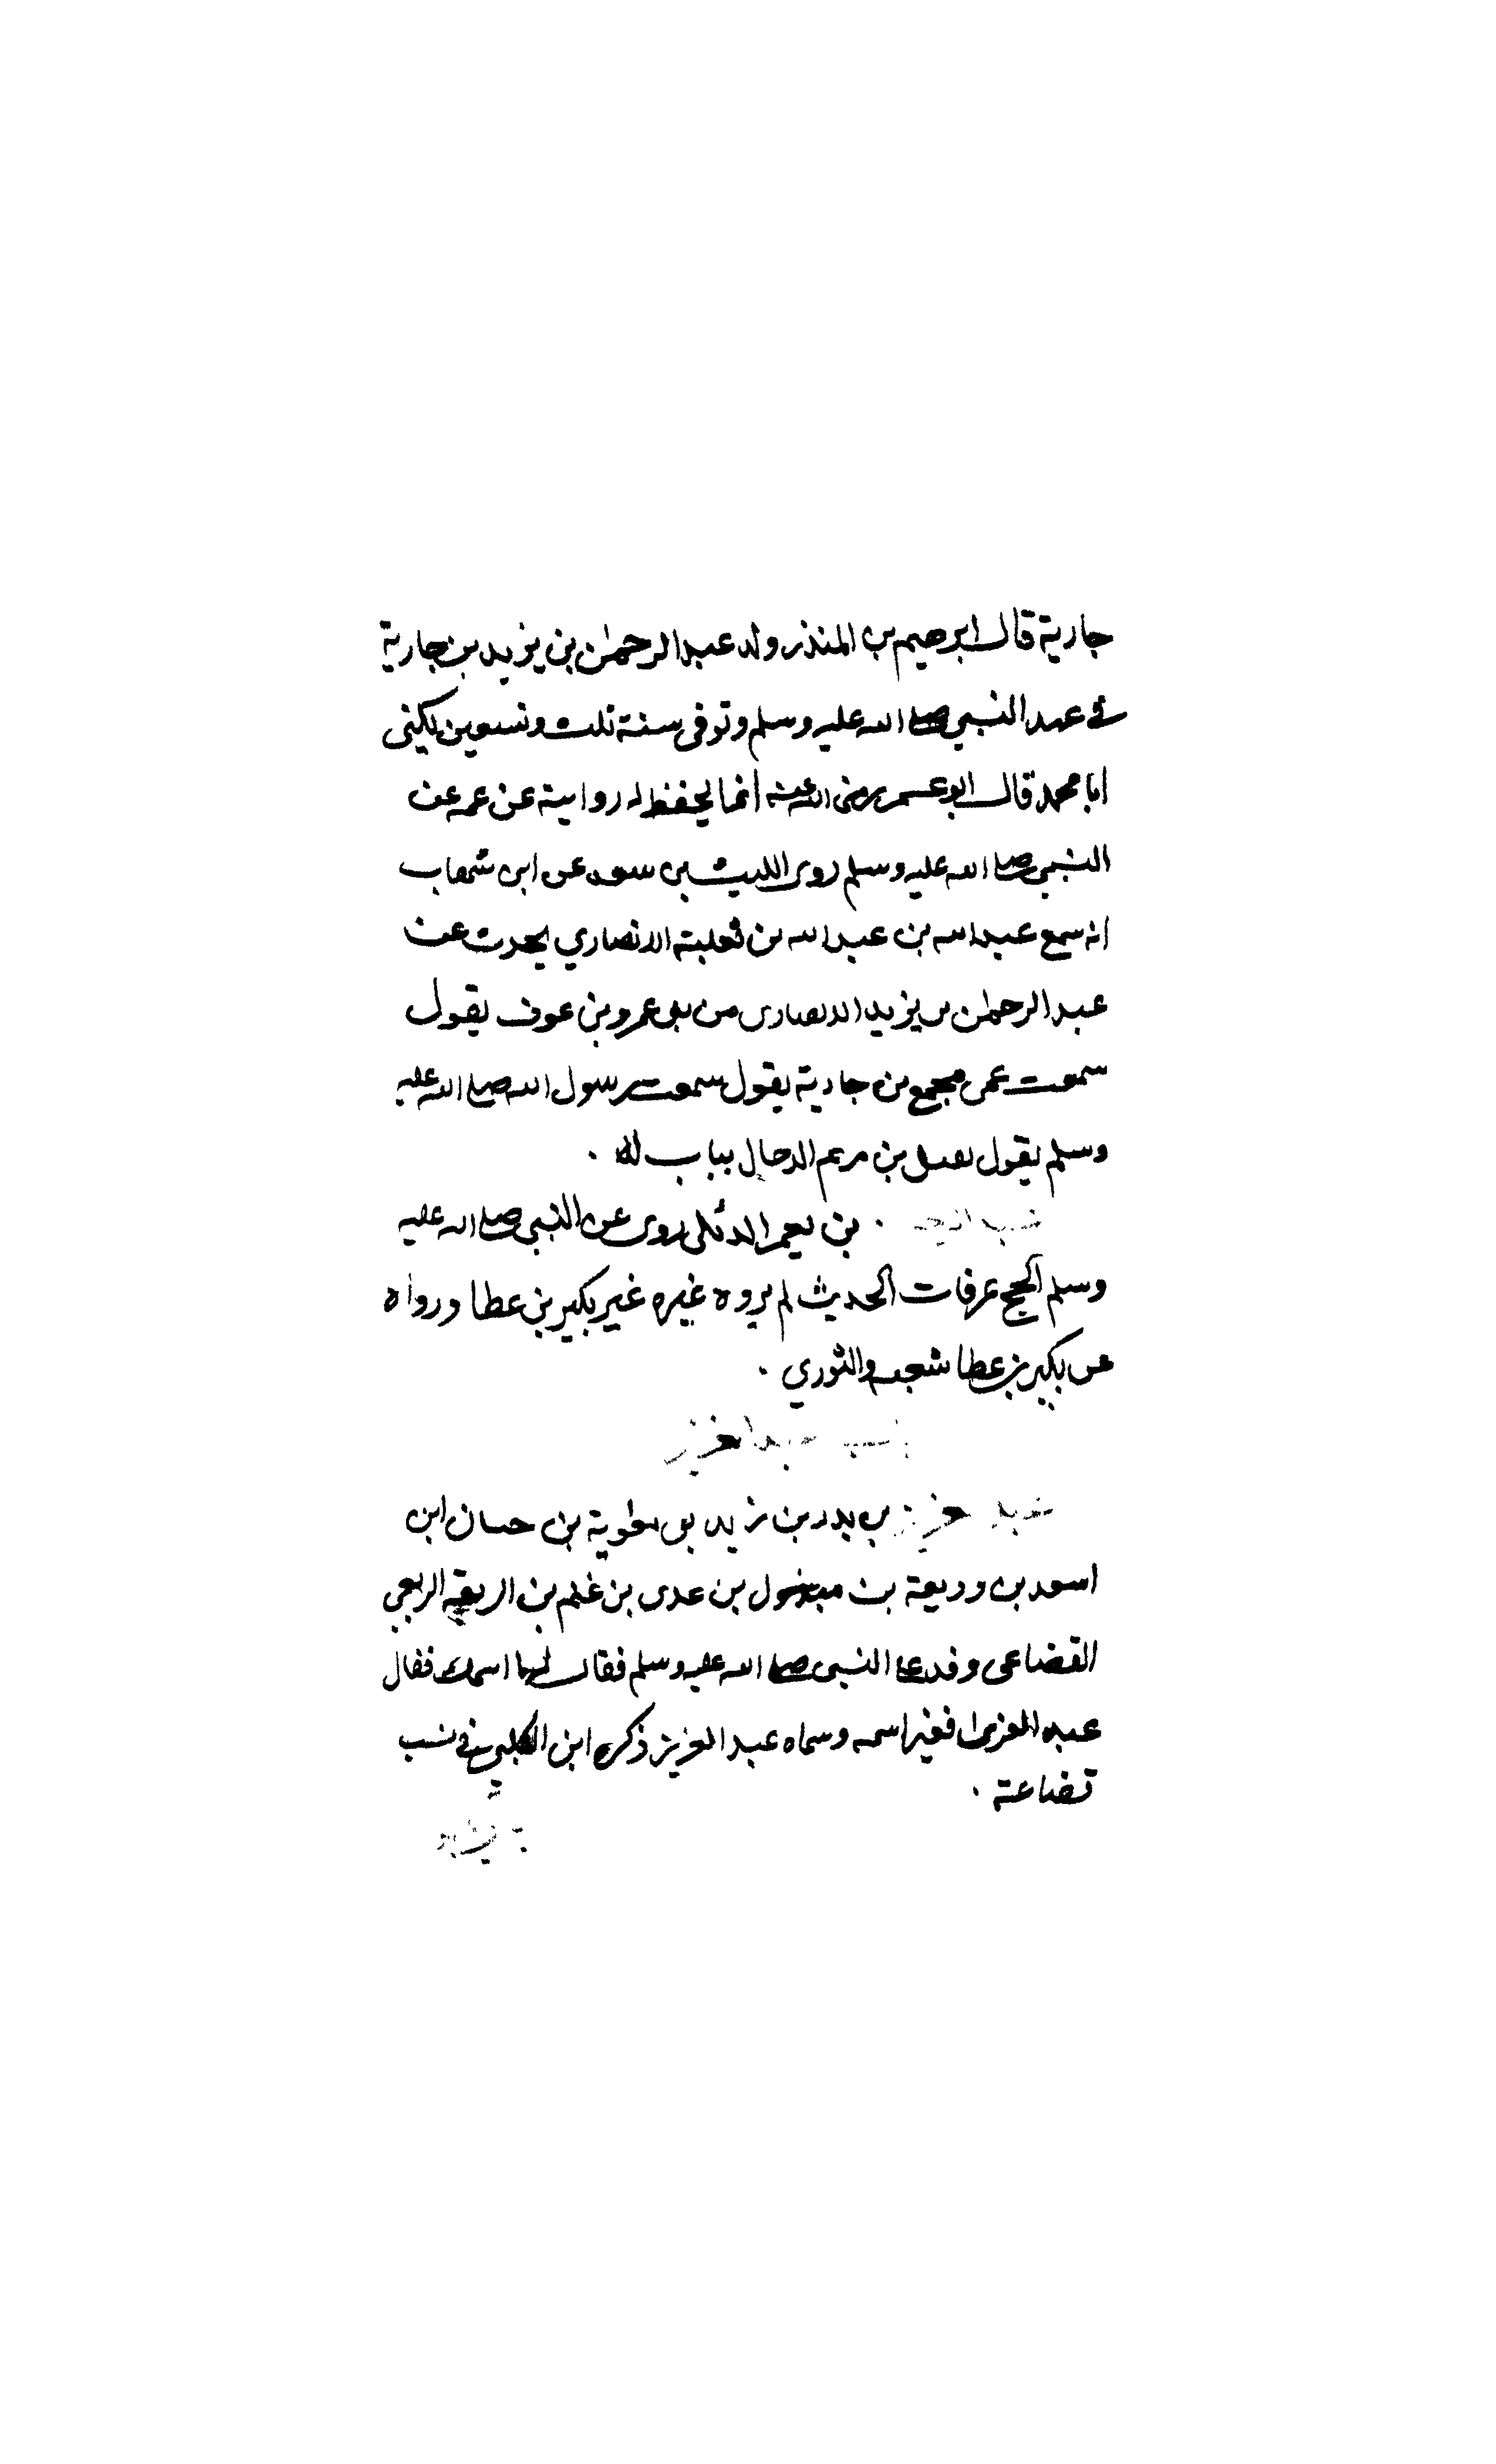 جارية قال ابرهيم بن المنذر ولد عبد الرحمن بن يزيد بن جارية
في عهد النبي صلى الله عليه وسلم وتوفى سنة ثلث وتسعين يكنى
ابا محمد قال ابو عمر رضى الله عنه انما يحفظ له رواية عن عمه عن
النبي صلى الله عليه وسلم روى الليث بن سعد عن ابن شهاب
انه سمع عبد الله بن عبد الله بن ثعلبة الانصاري يحدث عن
عبد الرحمن بن يزيد الانصارى من بنى عمرو بن عوف يقول
سمعت عمى مجمع بن جارية يقول سمعت رسول الله صلى الله عليه
وسلم يقول يقتل بن مريم الدجال بباب لد ٠
بن يعمر الدئلى روى عن النبي صلى الله عليه
وسلم الحج عرفات الحديث لم يروه غيره غير بكير بن عطا ورواه
عن بكير بن عطا شعبه والثوري ٠
عبد العزيز
عبد العزيز بن بدر بن زيد بن معوية بن حسان ابن
اسعد بن وديعة بن مبذول بن عدى بن غنم بن الربعه الربعي
القضاعى وفد على النبي صلى الله عليه وسلم فقال له ما اسمك فقال
عبد العزى فغير اسمه وسماه عبد العزيز ذكره ابن الكلبي في نسب
قضاعة ٠